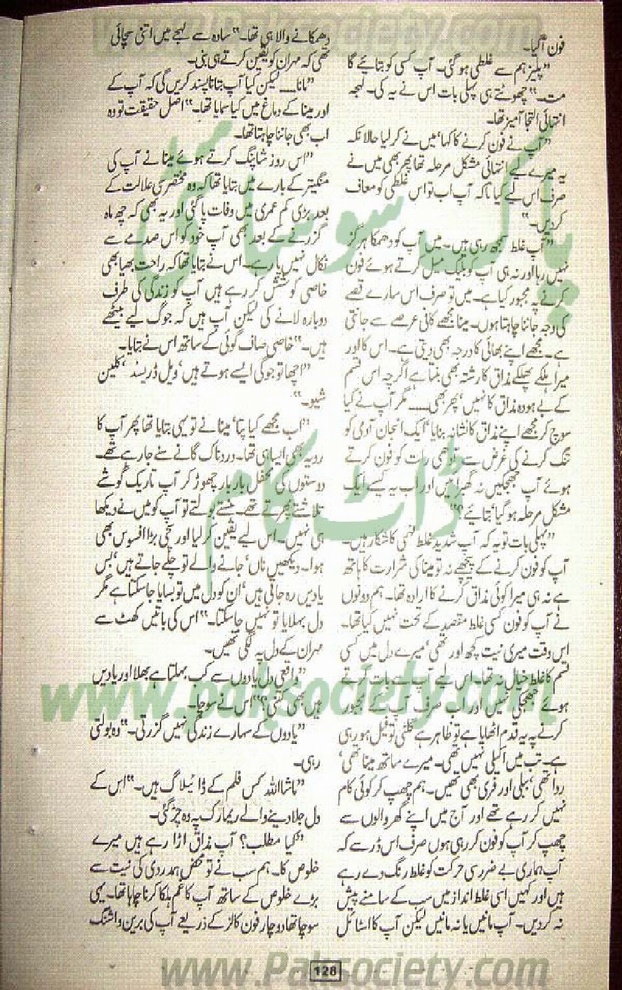 www.Paksociety.com
فون آ گیا۔
”پلیز ہم سے غلطی ہو گئی۔ آپ کسی کو بتائیے گا
مت۔“ چھوٹتے ہی پہلی بات اس نے یہ کی۔ لہجہ
انتہائی التجا آمیز تھا۔
”آپ نے فون کرنے کا کہا، میں نے کر لیا حالانکہ
یہ میرے لیے انتہائی مشکل مرحلہ تھا پھر بھی میں نے
صرف اس لیے کیا تاکہ آپ اب تو اس غلطی کو معاف
کر دیں۔“
”آپ غلط سمجھ رہی ہیں۔ میں آپ کو دھمکا ہرگز
نہیں رہا اور نہ ہی آپ کو بلیک میل کرتے ہوئے فون
کرنے پہ مجبور کیا ہے۔ میں تو صرف اس سارے قصے
کی وجہ جاننا چاہتا ہوں۔ مینا مجھے کافی عرصے سے جانتی
ہے۔ مجھے اپنے بھائی کا درجہ بھی دیتی ہے۔ اس کا اور
میرا ہلکے پھلکے مذاق کا رشتہ بھی بنتا ہے اگرچہ اس قسم
کے بے ہودہ مذاق کا نہیں، پھر بھی...... مگر آپ نے کیا
سوچ کر مجھے اپنے مذاق کا نشانہ بنایا، ایک انجان آدمی کو
تنگ کرنے کی غرض سے آدھی رات کو فون کرتے
ہوئے آپ جھجکیں نہ گھبرائیں اور اب یہ کیسے ایک
مشکل مرحلہ ہو گیا، بتائیے؟“
”پہلی بات تو یہ کہ آپ شدید غلط فہمی کا شکار ہیں۔
آپ کو فون کرنے کے پیچھے نہ تو مینا کی شرارت کا ہاتھ
ہے نہ ہی میرا کوئی مذاق کرنے کا ارادہ تھا۔ ہم دونوں
نے آپ کو فون کسی غلط مقصد کے تحت نہیں کیا تھا۔
اس وقت میری نیت کچھ اور تھی، میرے دل میں کسی
قسم کا غلط خیال نہ تھا۔ اس لیے آپ سے بات کرتے
ہوئے جھجکی نہیں اور اب صرف آپ کے مجبور
کرنے پہ یہ قدم اٹھایا ہے تو ظاہر ہے گلٹی تو فیل ہو رہی
ہے۔ تب میں اکیلی نہیں تھی۔ میرے ساتھ مینا تھی،
ردا تھی، نبیلی اور فری بھی تھیں۔ ہم چھپ کر کوئی کام
نہیں کر رہے تھے اور آج میں اپنے گھر والوں سے
چھپ کر آپ کو فون کر رہی ہوں صرف اس ڈر سے کہ
آپ ہماری بے ضرر سی حرکت کو غلط رنگ دے رہے
ہیں اور کہیں اسی غلط انداز میں سب کے سامنے پیش
نہ کر دیں۔ آپ مانیں یا نہ مانیں لیکن آپ کا اسٹائل
دھمکانے والا ہی تھا۔“ سادہ سے لہجے میں اتنی سچائی
تھی کہ مہران کو یقین کرتے ہی بنی۔
”مانا...... لیکن کیا آپ بتانا پسند کریں گی کہ آپ کے
اور مینا کے دماغ میں کیا سمایا تھا۔“ اصل حقیقت تو وہ
اب بھی جاننا چاہتا تھا۔
”اس روز شاپنگ کرتے ہوئے مینا نے آپ کی
منگیتر کے بارے میں بتایا تھا کہ وہ مختصر سی علالت کے
بعد بڑی کم عمری میں وفات پا گئی اور یہ بھی کہ چھ ماہ
گزرنے کے بعد بھی آپ خود کو اس صدمے سے
نکال نہیں پا رہے۔ اس نے بتایا تھا کہ راحت بھیا بھی
خاصی کوشش کر رہے ہیں آپ کو زندگی کی طرف
دوبارہ لانے کی لیکن آپ ہیں کہ جوگ لیے بیٹھے
ہیں۔“ خاصی صاف گوئی کے ساتھ اس نے بتایا۔
”اچھا تو جوگی ایسے ہوتے ہیں، ویل ڈریسڈ، کلین
شیو۔“
”اب مجھے کیا پتا، مینا نے تو یہی بتایا تھا پھر آپ کا
رویہ بھی ایسا ہی تھا۔ درد ناک گانے سنے جا رہے تھے۔
دوستوں کی محفل بار بار چھوڑ کر آپ تاریک گوشے
تلاشتے پھرتے تھے۔ ہنستے بولتے تو آپ کو میں نے دیکھا
ہی نہیں۔ اس لیے یقین کر لیا اور سچی بڑا افسوس بھی
ہوا۔ دیکھیں ناں، جانے والے تو چلے جاتے ہیں، بس
یادیں رہ جاتی ہیں، ان کو دل میں تو بسایا جا سکتا ہے مگر
دل بہلایا تو نہیں جا سکتا۔“ اس کی باتیں کھٹ سے
مہران کے دل پہ لگی تھیں۔
”واقعی دل یادوں سے کب بہلتا ہے بھلا اور یادیں
ہیں بھی کتنی؟“ اس نے سوچا۔
”یادوں کے سہارے زندگی نہیں گزرتی۔“ وہ بولتی
رہی۔
”ماشاءاللہ کس فلم کے ڈائیلاگ ہیں۔“ اس کے
دل جلا دینے والے ریمارک پہ وہ چڑ گئی۔
”کیا مطلب؟ آپ مذاق اڑا رہے ہیں میرے
خلوص کا۔ ہم سب نے تو محض ہمدردی کی نیت سے
بڑے خلوص کے ساتھ آپ کا غم ہلکا کرنا چاہا تھا۔ یہی
سوچا تھا دو چار فون کالز کے ذریعے آپ کی برین واشنگ
پاک سوسائٹی
ڈاٹ کام
www.paksociety.com
128
www.Paksociety.com